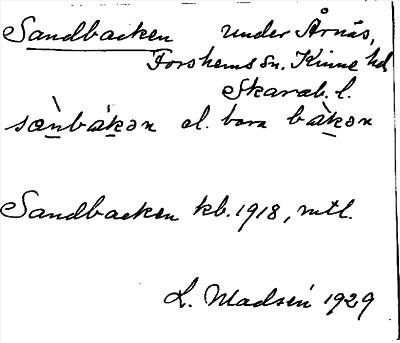 Sandbacken under Årnäs,
Forshems sn. Kinne hd
Skarab. l.
sænbakən el. bara bàkən
Sandbacken kb. 1918, mtl.
L. Madsén 1929